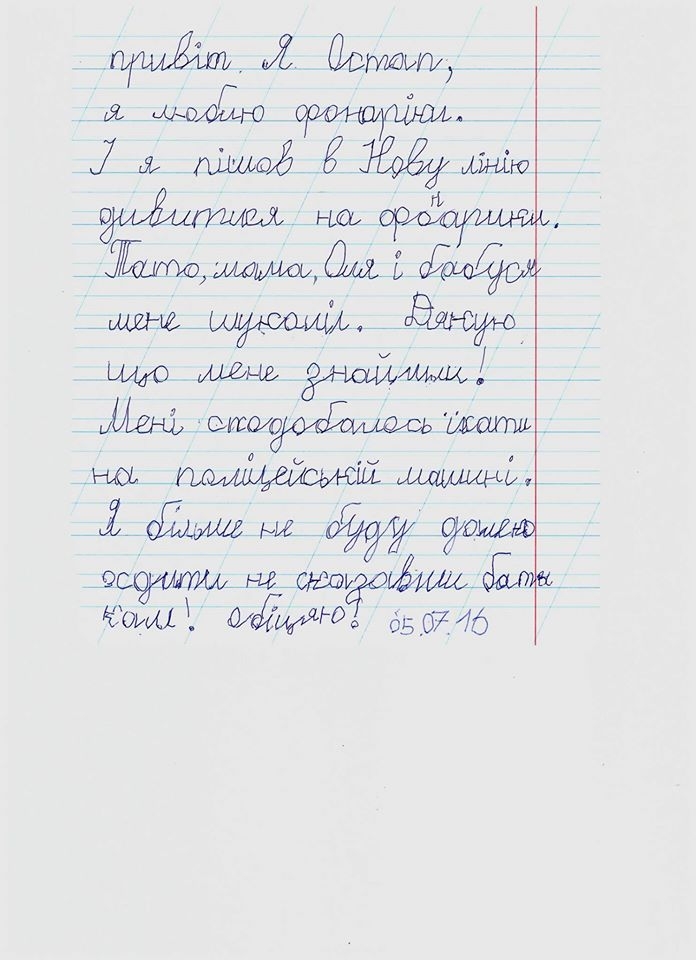 привіт Я Остап,
я люблю фонаріки.
І я пішов в Нову лінію
дивитися на фонарики.
Тато, мама, Оля і бабуся
мене шукапіл. Дякую
що мене знайшли!
Мені сподобалось їхати
на поліцейській машині.
Я більше не буду далеко
ходити не сказавши бать
кам! обіцяю! 05.07.16